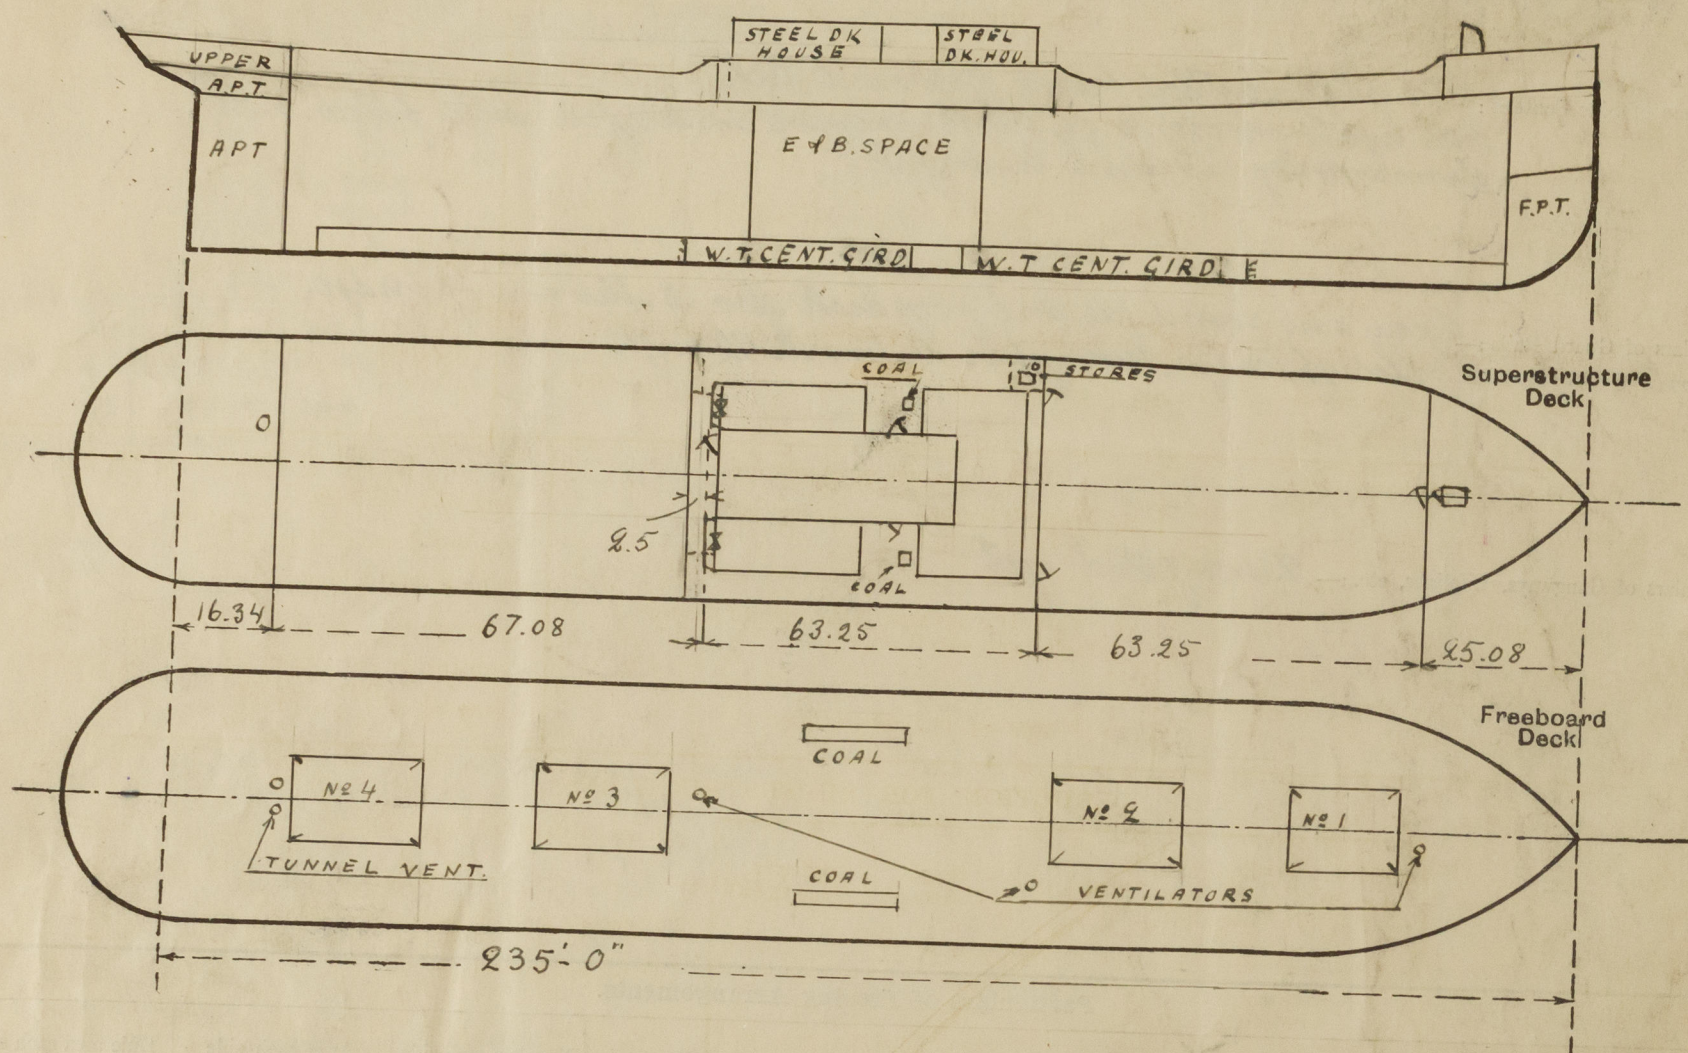 STEEL DK
HOUSE
STEEL
DK. HOU.
UPPER
A.P.T.
APT
E & B. SPACE
F.P.T.
W.T. CENT. GIRD
W.T CENT. GIRD.
COAL
STORES
Superstructure
Deck
2.5
COAL
16.34
67.08
63.25
63.25
25.08
Freeboard
Deck
COAL
Nº 4
Nº 3
Nº 2
Nº 1
TUNNEL VENT.
COAL
VENTILATORS
235'- 0"